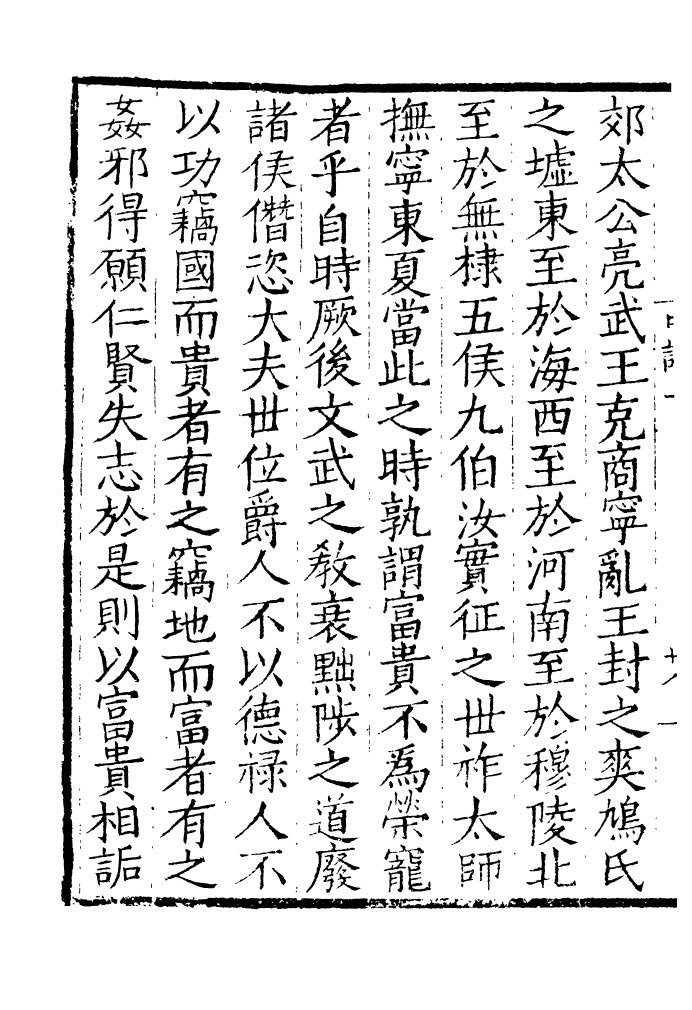 郊太公亮武王克商寧亂王封之爽鳩氏
之墟東至於海西至於河南至於穆陵北
至於無棣五侯九伯汝實征之世祚太師
撫寧東夏當此之時孰謂富貴不為榮寵
者乎自時厥後文武之教衰黜陟之道廢
諸侯僭恣大夫世位爵人不以德祿人不
以功竊國而貴者有之竊地而富者有之
姦邪得願仁賢失志於是則以富貴相詬